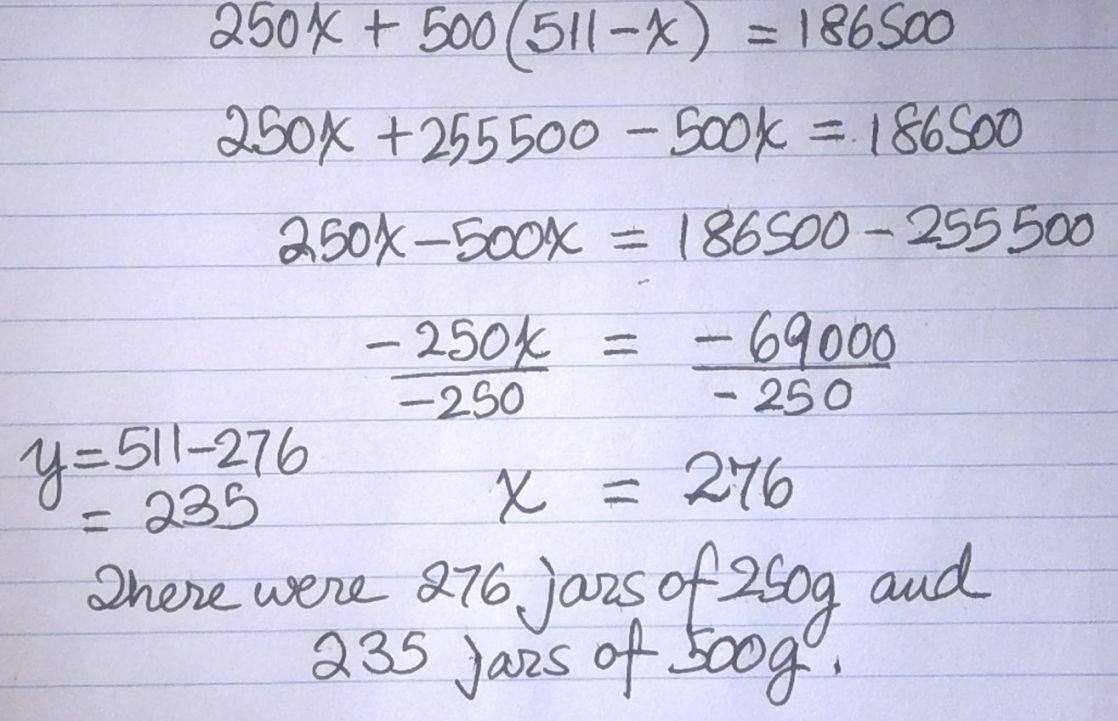 250x + 500(511-x) = 186500
250x + 255500 - 500x = 186500
250x - 500x = 186500 - 255500
-250x = -69000
-250 -250
y = 511-276
= 235
x = 276
There were 276 jars of 250g and
235 jars of 500g.